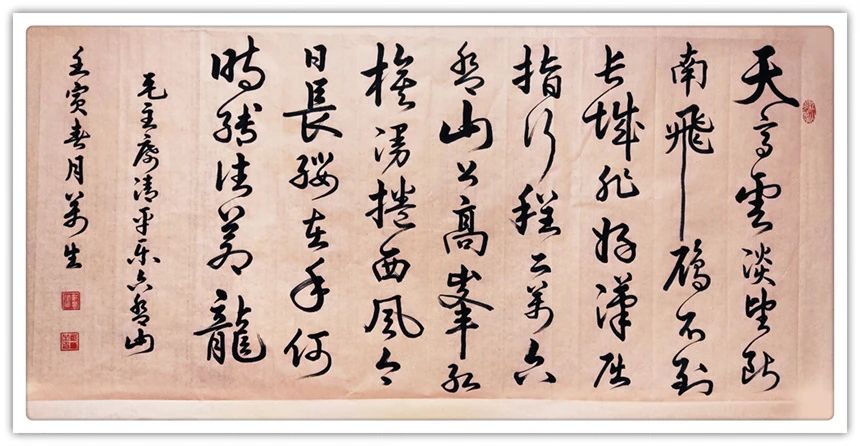 天高雲淡望斷
南飛鴈不到
长城非好漢屈
指行程二萬六
盤山上高峯紅
旗漫捲西風今
日長纓在手何
時縛住蒼龍
毛主席清平乐六盤山
壬寅春月萬生